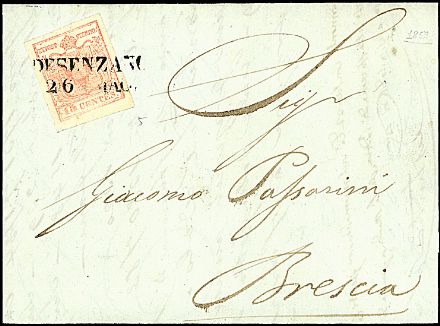 1853
DESENZANO
26 MAG.
15 CENTES
5
Sigr
Giacomo Passarini
Brescia